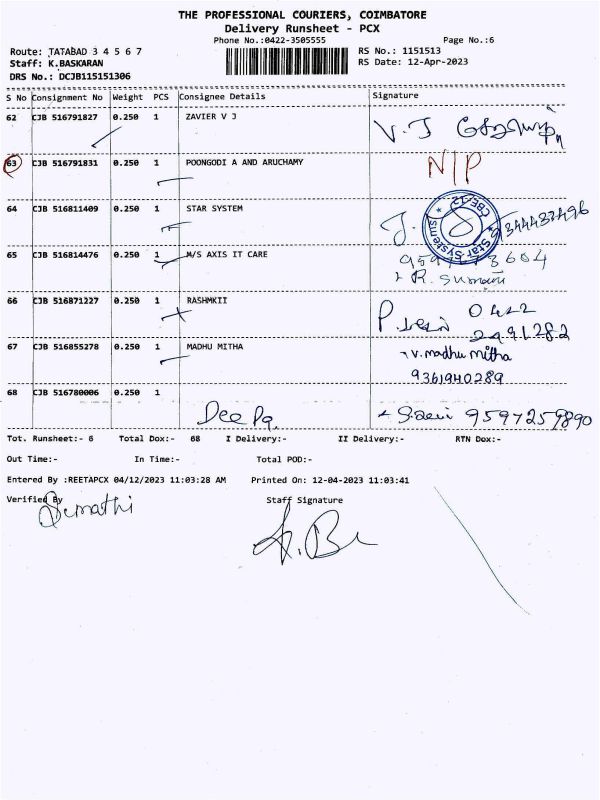 THE PROFESSIONAL COURIERS, COIMBATORE
Delivery Runsheet - PCX
Phone No.:0422-3505555 Page No.:6
Route: TATABAD 3 4 5 6 7 RS No.: 1151513
Staff: K.BASKARAN RS Date: 12-Apr-2023
DRS No.: DCJB115151306
S No Consignment No Weight PCS Consignee Details Signature
62 CJB 516791827 0.250 1 ZAVIER V J V. J
63 CJB 516791831 0.250 1 POONGODI A AND ARUCHAMY N/P
64 CJB 516811409 0.250 1 STAR SYSTEM J. Star Systems CBE-12 9344437496
65 CJB 516814476 0.250 1 M/S AXIS IT CARE 3604
R. Sumani
66 CJB 516871227 0.250 1 RASHMKII P. 0422
2491282
67 CJB 516855278 0.250 1 MADHU MITHA v. madhu mitha
9361940289
68 CJB 516780006 0.250 1
Deepa 9597259890
Tot. Runsheet:- 6 Total Dox:- 68 I Delivery:- II Delivery:- RTN Dox:-
Out Time:- In Time:- Total POD:-
Entered By :REETAPCX 04/12/2023 11:03:28 AM Printed On: 12-04-2023 11:03:41
Verified By Staff Signature